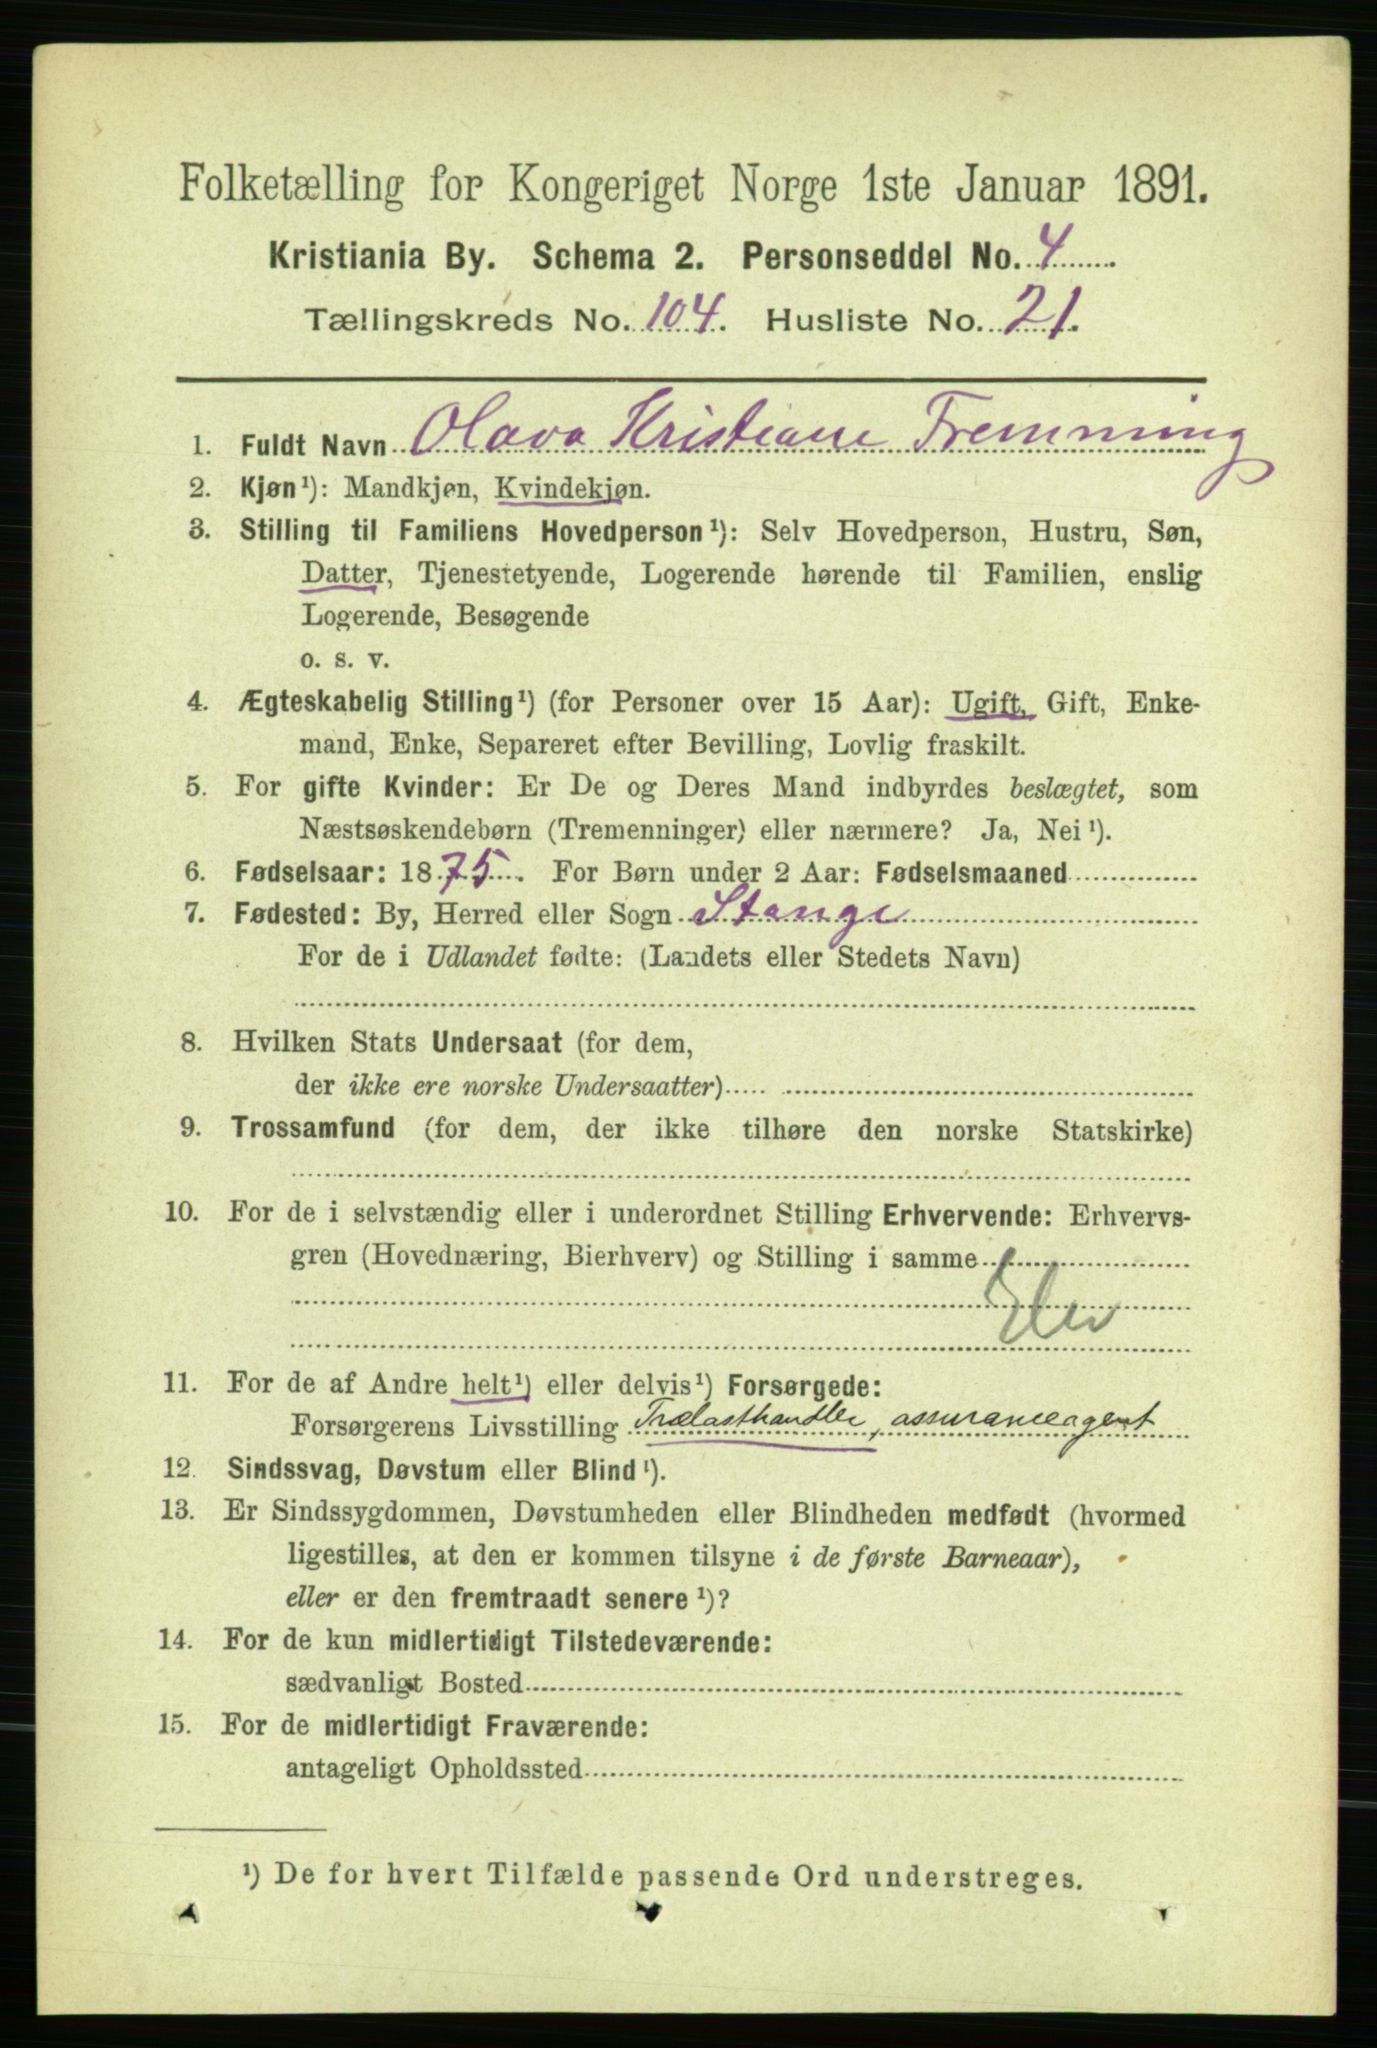 Folketælling for Kongeriget Norge 1ste Januar 1891.
Kristiania By. Schema 2. Personseddel No. 4
Tællingskreds No. 104. Husliste No. 21.
1. Fuldt Navn Olava Kristiane Fremming
2. Kjøn¹): Mandkjøn, Kvindekjøn.
3. Stilling til Familiens Hovedperson¹): Selv Hovedperson, Hustru, Søn,
Datter, Tjenestetyende, Logerende hørende til Familien, enslig
Logerende, Besøgende
o. s. v.
4. Ægteskabelig Stilling¹) (for Personer over 15 Aar): Ugift, Gift, Enke-
mand, Enke, Separeret efter Bevilling, Lovlig fraskilt.
5. For gifte Kvinder: Er De og Deres Mand indbyrdes beslægtet, som
Næstsøskendebørn (Tremenninger) eller nærmere? Ja, Nei¹).
6. Fødselsaar: 1875. For Børn under 2 Aar: Fødselsmaaned
7. Fødested: By, Herred eller Sogn Stange
For de i Udlandet fødte: (Landets eller Stedets Navn)
8. Hvilken Stats Undersaat (for dem,
der ikke ere norske Undersaatter)
9. Trossamfund (for dem, der ikke tilhøre den norske Statskirke)
10. For de i selvstændig eller i underordnet Stilling Erhvervende: Erhvervs-
gren (Hovednæring, Bierhverv) og Stilling i samme
Elev
11. For de af Andre helt¹) eller delvis¹) Forsørgede:
Forsørgerens Livsstilling Trælasthandler, assuranceagent
12. Sindssvag, Døvstum eller Blind¹).
13. Er Sindssygdommen, Døvstumheden eller Blindheden medfødt (hvormed
ligestilles, at den er kommen tilsyne i de første Barneaar),
eller er den fremtraadt senere¹)?
14. For de kun midlertidigt Tilstedeværende:
sædvanligt Bosted
15. For de midlertidigt Fraværende:
antageligt Opholdssted
¹) De for hvert Tilfælde passende Ord understreges.